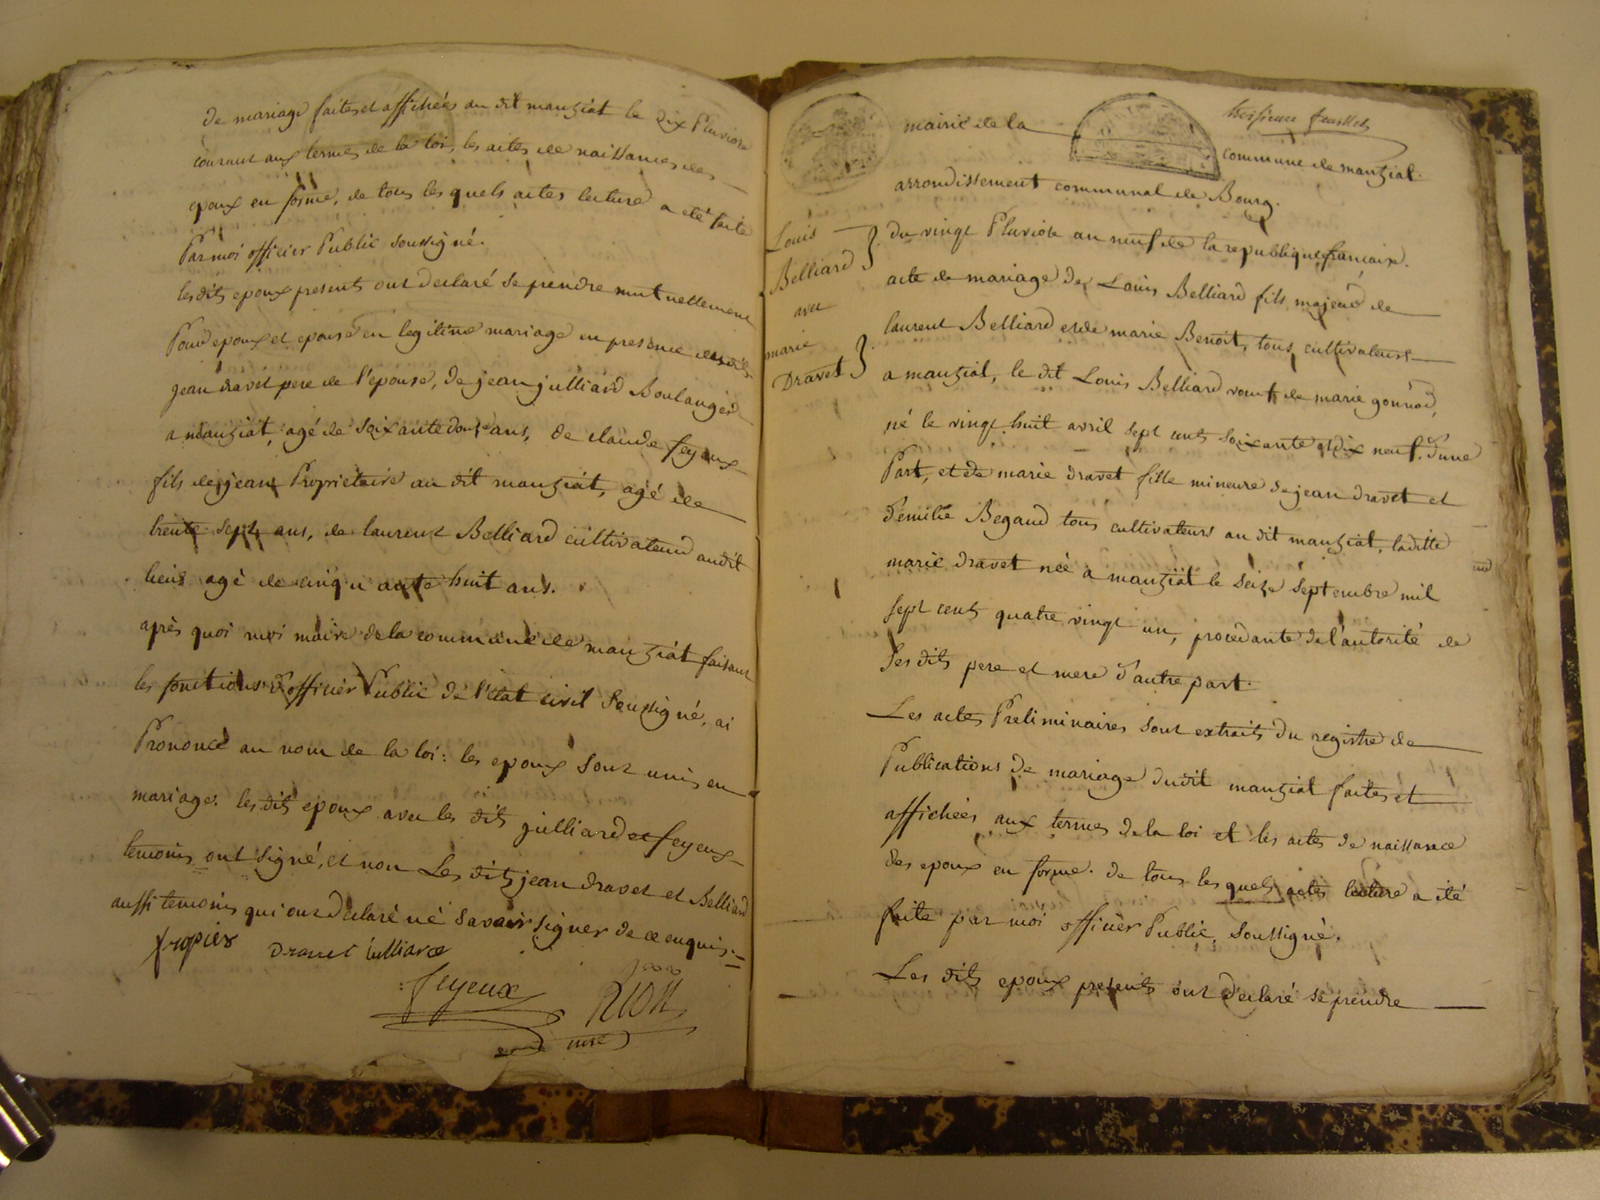 de mariage faites et affichées au dit manziat le dix Pluviose
courant aux termes de la loi, les actes de naissances des
epoux en forme, de tous les quels actes lecture a eté faite
Par moi officier Public soussigné.
les dits epoux presents ont declaré se prendre mutuellement
Pour epoux et epouse en legitime mariage en presence
jean dravet pere de l'epouse, de jean julliard Boulanger
a manziat, agé de soixante douze ans, de claude feyeux
fils de jean Proprietaire au dit manziat, agé de
trente sept ans, de laurent Belliard cultivateur audit
lieu agé de cinquante huit ans.
après quoi moi maire de la commune de manziat faisant
les fonctions d'officier Public de l'etat civil soussigné, ai
Prononcé au nom de la loi: les epoux sont unis en
mariage. les dits epoux avec les dits julliard et feyeux
temoins ont signé, et non Les dits jean dravet et Belliard
aussi temoins qui ont declaré ne savoir signer de ce enquis.
Dravet julliard
feyeux
mre
mairie de la
feuillet
commune de manziat.
arrondissement communal de Bourg.
Louis
Belliard
avec
marie
Dravet
du vingt Pluviose an neuf de la republique francaise.
acte de mariage de Louis Belliard fils majeur de
laurent Belliard et de marie Benoit, tous cultivateurs
a manziat, le dit Louis Belliard veuf de marie gonnod,
né le vingt huit avril sept cents soixante et dix neuf. d'une
Part, et de marie dravet fille mineure de jean dravet et
d'emilie Begaud tous cultivateurs au dit manziat, laditte
marie dravet née a manziat le seize septembre mil
sept cents quatre vingt un, procedante de l'autorité de
ses dits pere et mere d'autre part.
Les actes Preliminaires sont extraits du registre de
Publications de mariage dudit manziat faites et
affichées aux termes de la loi et les actes de naissance
des epoux en forme. de tous les quels actes lecture a été
faite par moi officier Public, soussigné.
Les dits epoux presents ont declaré se prendre